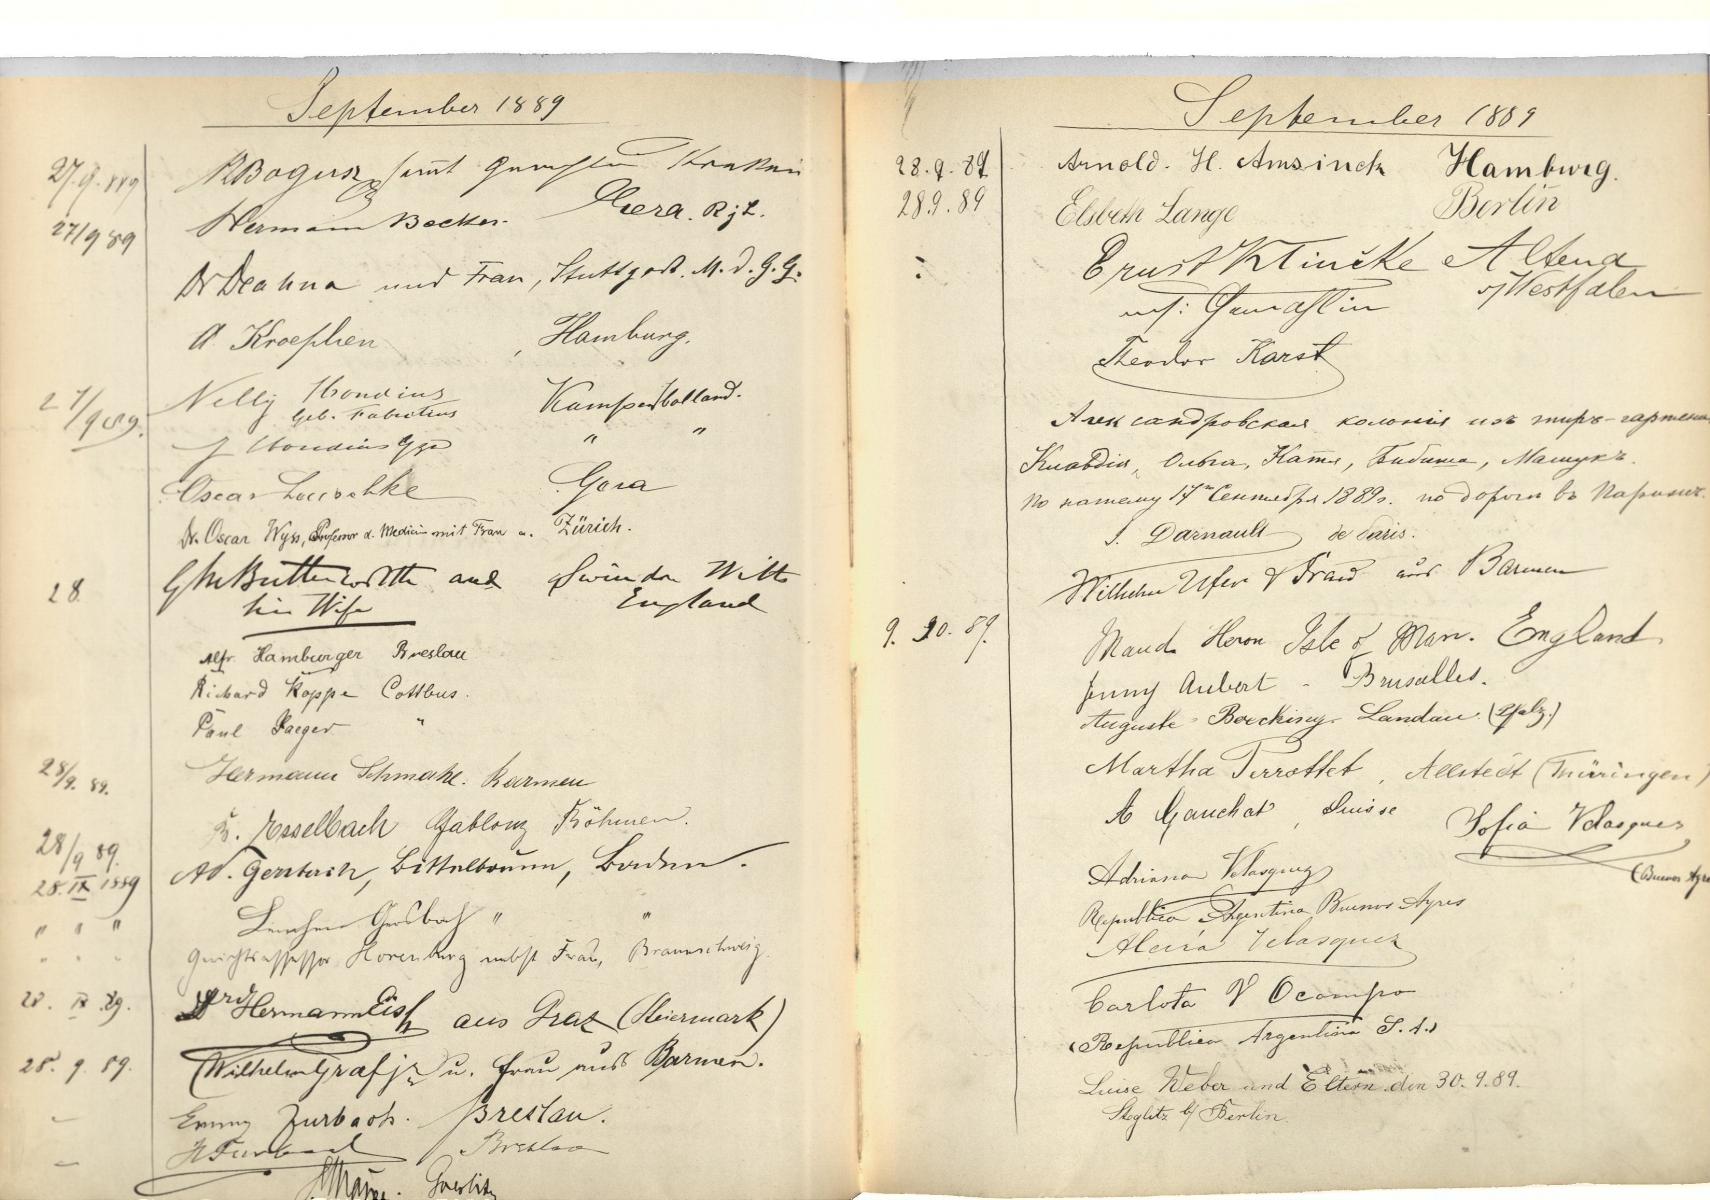 September 1889
27.9.889 Bogusz samt
27/9 89 Hermann Becker. Gera. R j L.
Dr Deahna und Frau, Stuttgart. M. d. G. G.
A. Kroephen, Hamburg.
27/9 89. Nelly Hondius Kampen Holland.
geb. Fabritius
J Hondius " "
Oscar Gera
Dr. Oscar Wyss, Professor d. Medicin mit Frau a. Zürich.
28. Butterworth and Swindon Wilts
his Wife England
Alfr. Hamburger Breslau
Richard Koppe Cottbus.
Paul Jaeger "
28/9. 89. Hermann Schmahl. Barmen
28/9 89. Esselbach Gablonz Böhmen.
28. IX 1889 Ad. Gersbach, Baden.
" " " Lenchen Gersbach " "
" " " Gerichtsassessor Horenburg nebst Frau, Braunschweig.
28. IX .89. Hermann aus Graz (Steiermark)
28. 9. 89. Wilhelm Graf jr u. Frau aus Barmen.
– Emmy Zurbach. Breslau.
– Breslau
Goerlitz
September 1889
28.9.89 Arnold. H. Amsinck Hamburg.
28.9.89 Elsbeth Lange Berlin
: Ernst Klincke Altena
m/: Gemahlin i/Westfalen
Theodor Karst
Александровская колонія изъ тиръ-гартена
Клавдія, Ольга, Катя, Бибиша, Машукъ.
по нашему 17го Сентября 1889г. по дороги въ Парижъ.
J. Darnault de Paris.
Wilhelm Ufer & Frau aus Barmen
9. 30. 89. Maud Heron Isle of Man. England
Jenny Aubert - Bruxelles.
Auguste Boecking Landau. (Pfalz.)
Martha Perrottet, Allstedt (Thüringen)
A Gauchat, Suisse Sofia Velasquez
(Buenos Ayres
Adriana Velasquez
Republica Argentina Buenos Ayres
Maria Velasquez
Carlota V Ocampo
(Republica Argentina S. A.)
Luise Weber und Eltern den 30. 9. 89.
Steglitz b/ Berlin.